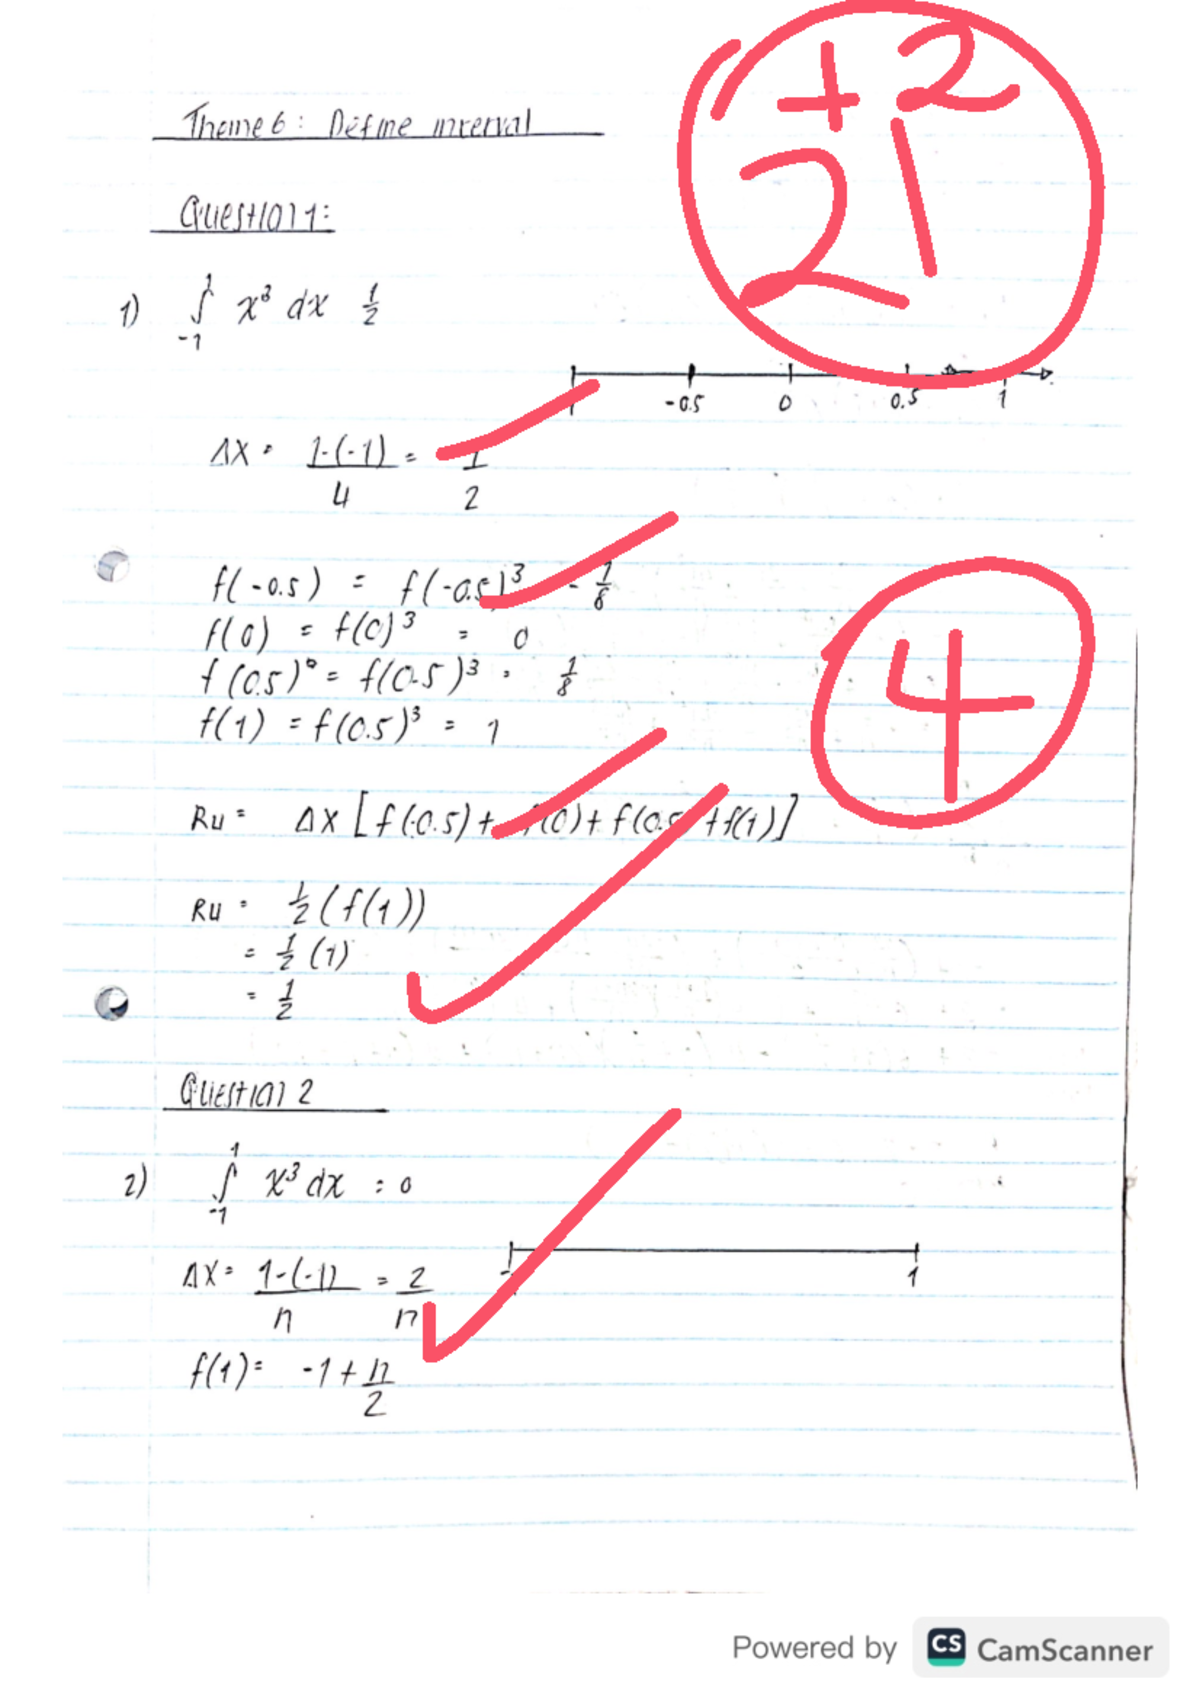 +2
21
Theme 6: Define interval
Question 1:
1) ∫ from -1 to 1 x³ dx 1/2
-0.5 0 0.5 1
Δx = 1-(-1)/4 = 1/2
f(-0.5) = f(-0.5)³ = 1/8
f(0) = f(0)³ = 0
f(0.5) = f(0.5)³ = 1/8
f(1) = f(0.5)³ = 1
4
Ru = Δx [f(-0.5) + f(0) + f(0.5) + f(1)]
Ru = 1/2 (f(1))
= 1/2 (1)
= 1/2
Question 2
2) ∫ from -1 to 1 x³ dx = 0
Δx = 1-(-1)/n = 2/n
1
f(1) = -1 + n/2
Powered by CS CamScanner